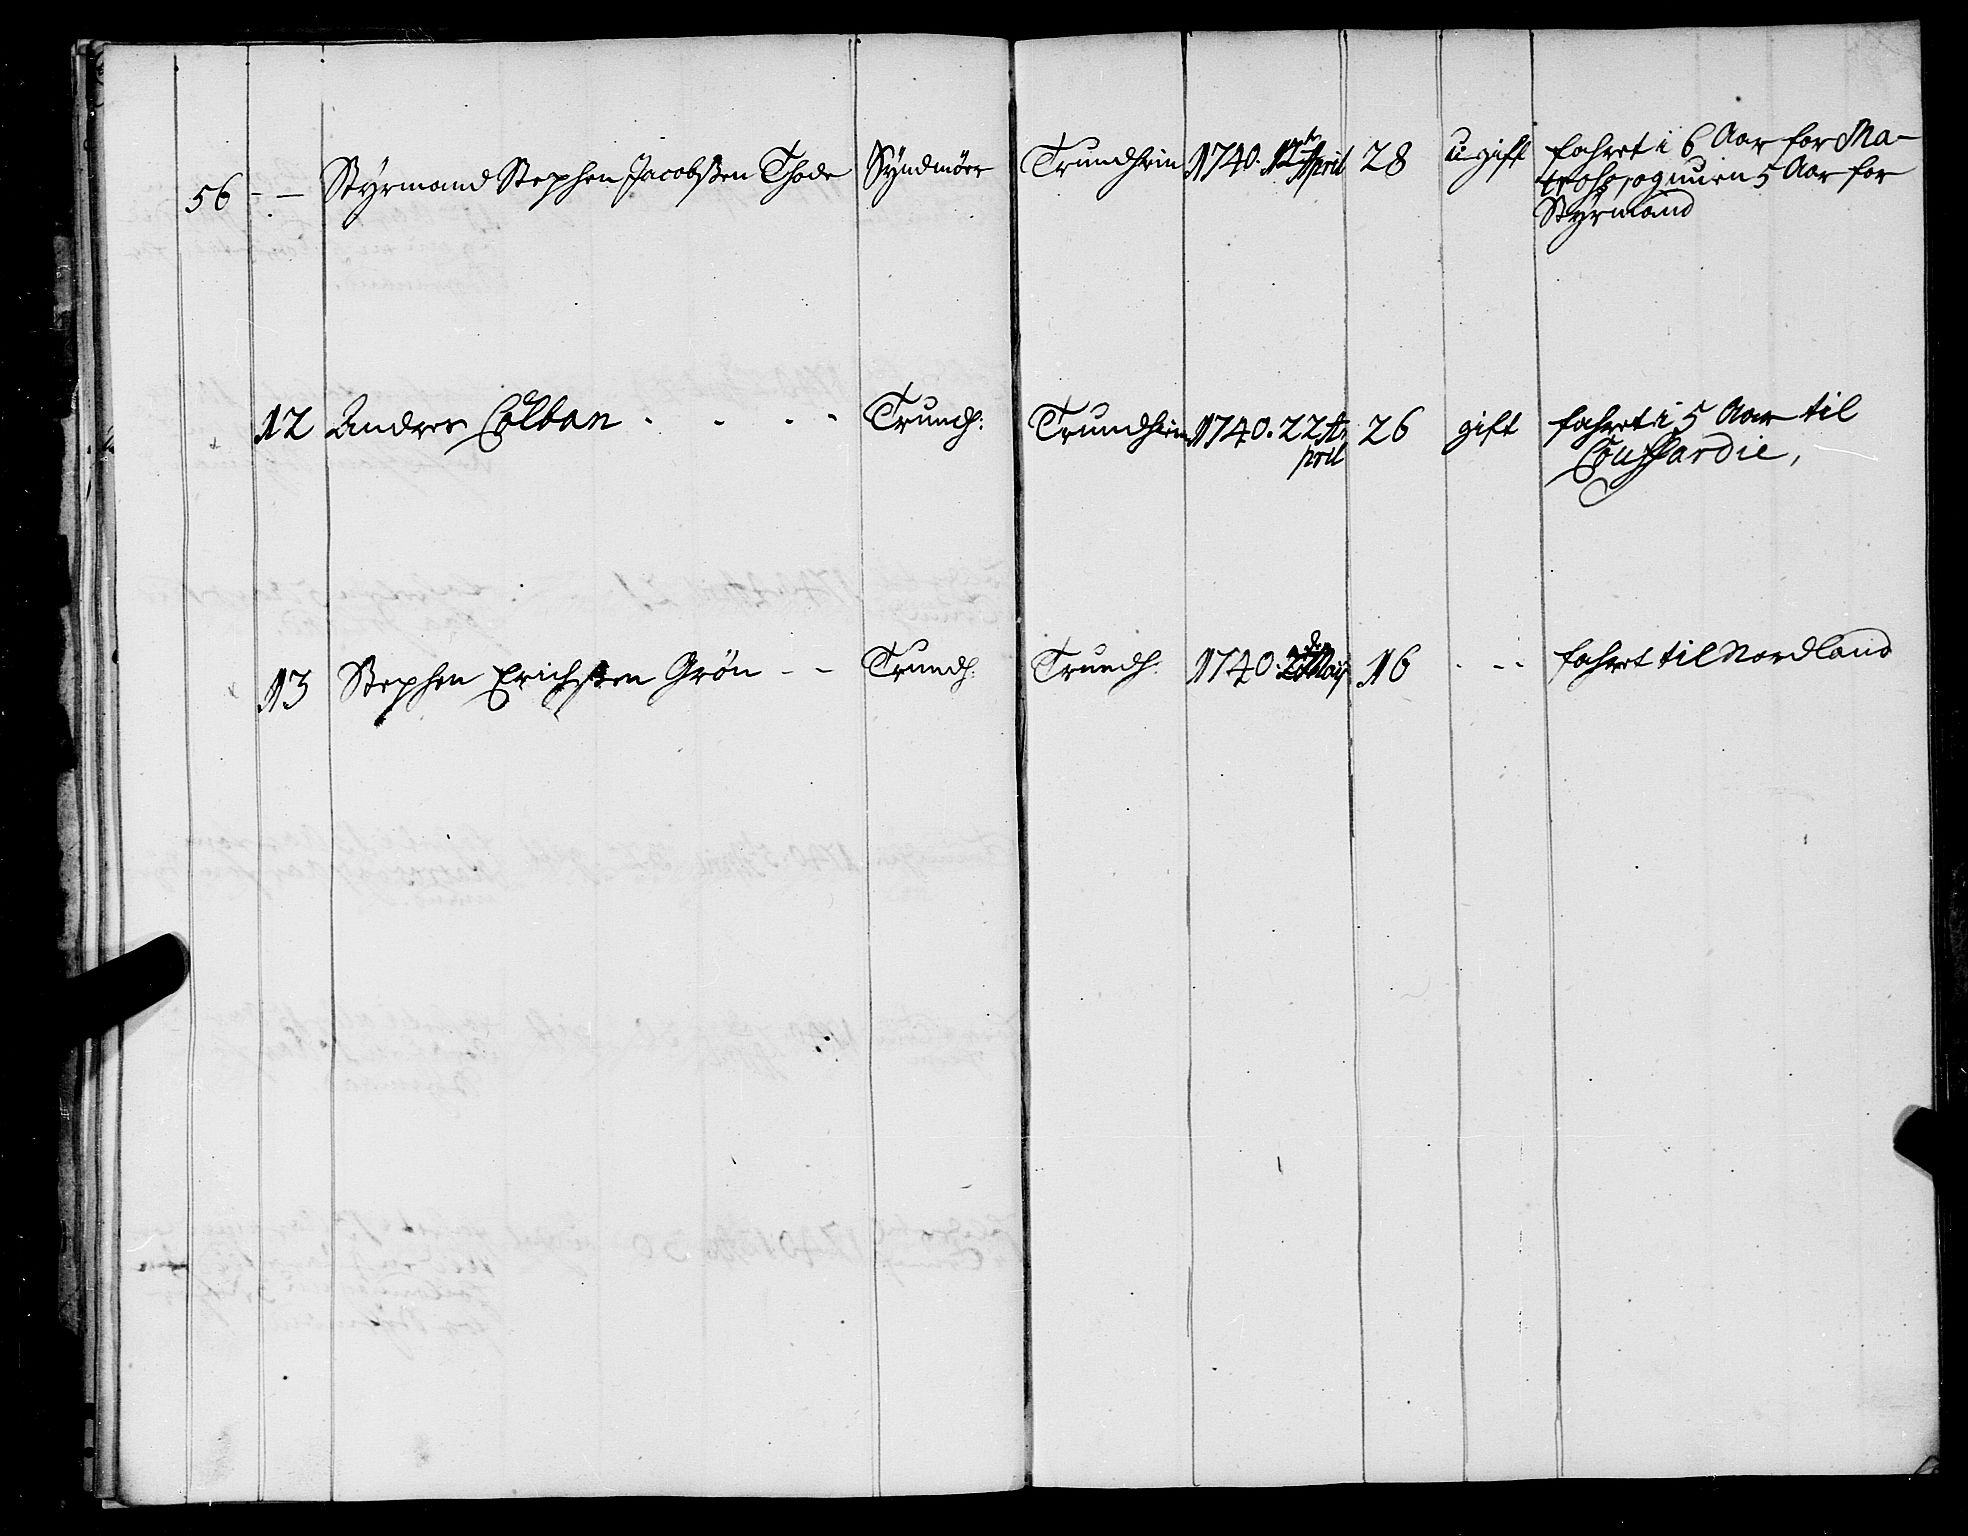 56 - - Styrmand Stephen Jacobsen Thode Syndmöer Trundheim 1740. 12te April 28 ugift fahret i 6 Aar for Ma-
trohs, og nu en 5 Aar for
Styrmand
12 Anders Colban - - - - Trundh: Trundheim 1740. 22 A- 26 gift fahret i 5 Aar til
pril Couffardie,
13 Stephen Erichsen Grön - - Trundh: Trundh: 1740. Maij 16 - - - fahret til Nordland